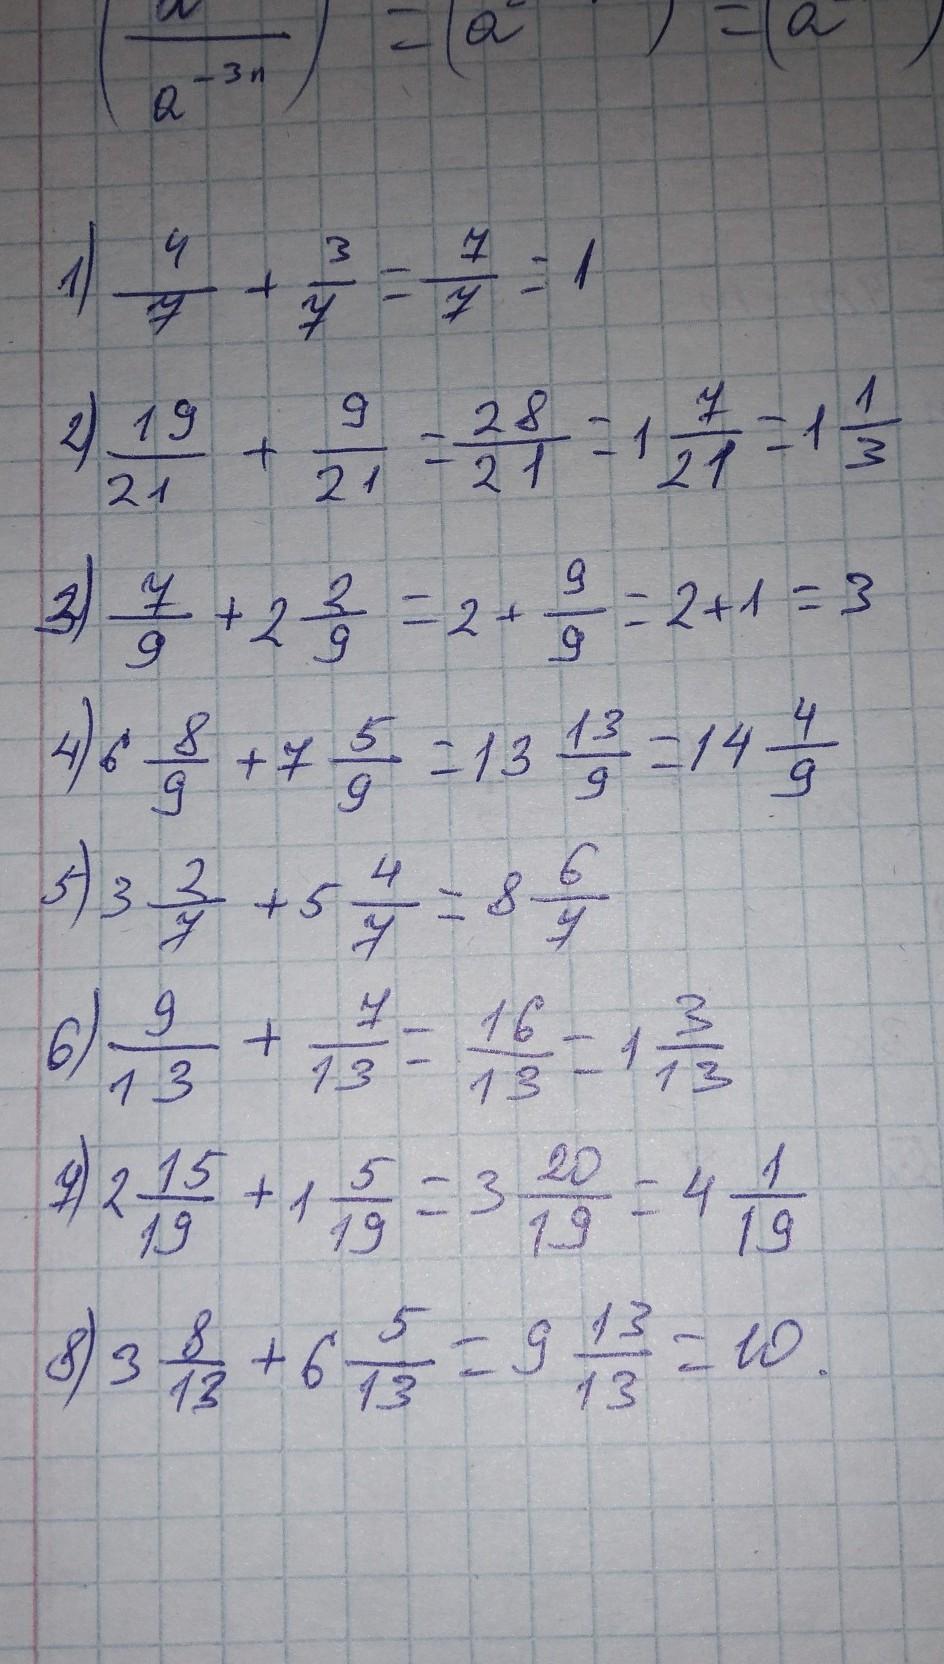 (a / a^-3n) = (a ) = (a )
1) 4/7 + 3/7 = 7/7 = 1
2) 19/21 + 9/21 = 28/21 = 1 7/21 = 1 1/3
3) 7/9 + 2 2/9 = 2 + 9/9 = 2+1 = 3
4) 6 8/9 + 7 5/9 = 13 13/9 = 14 4/9
5) 3 2/7 + 5 4/7 = 8 6/7
6) 9/13 + 7/13 = 16/13 = 1 3/13
7) 2 15/19 + 1 5/19 = 3 20/19 = 4 1/19
8) 3 8/13 + 6 5/13 = 9 13/13 = 10.